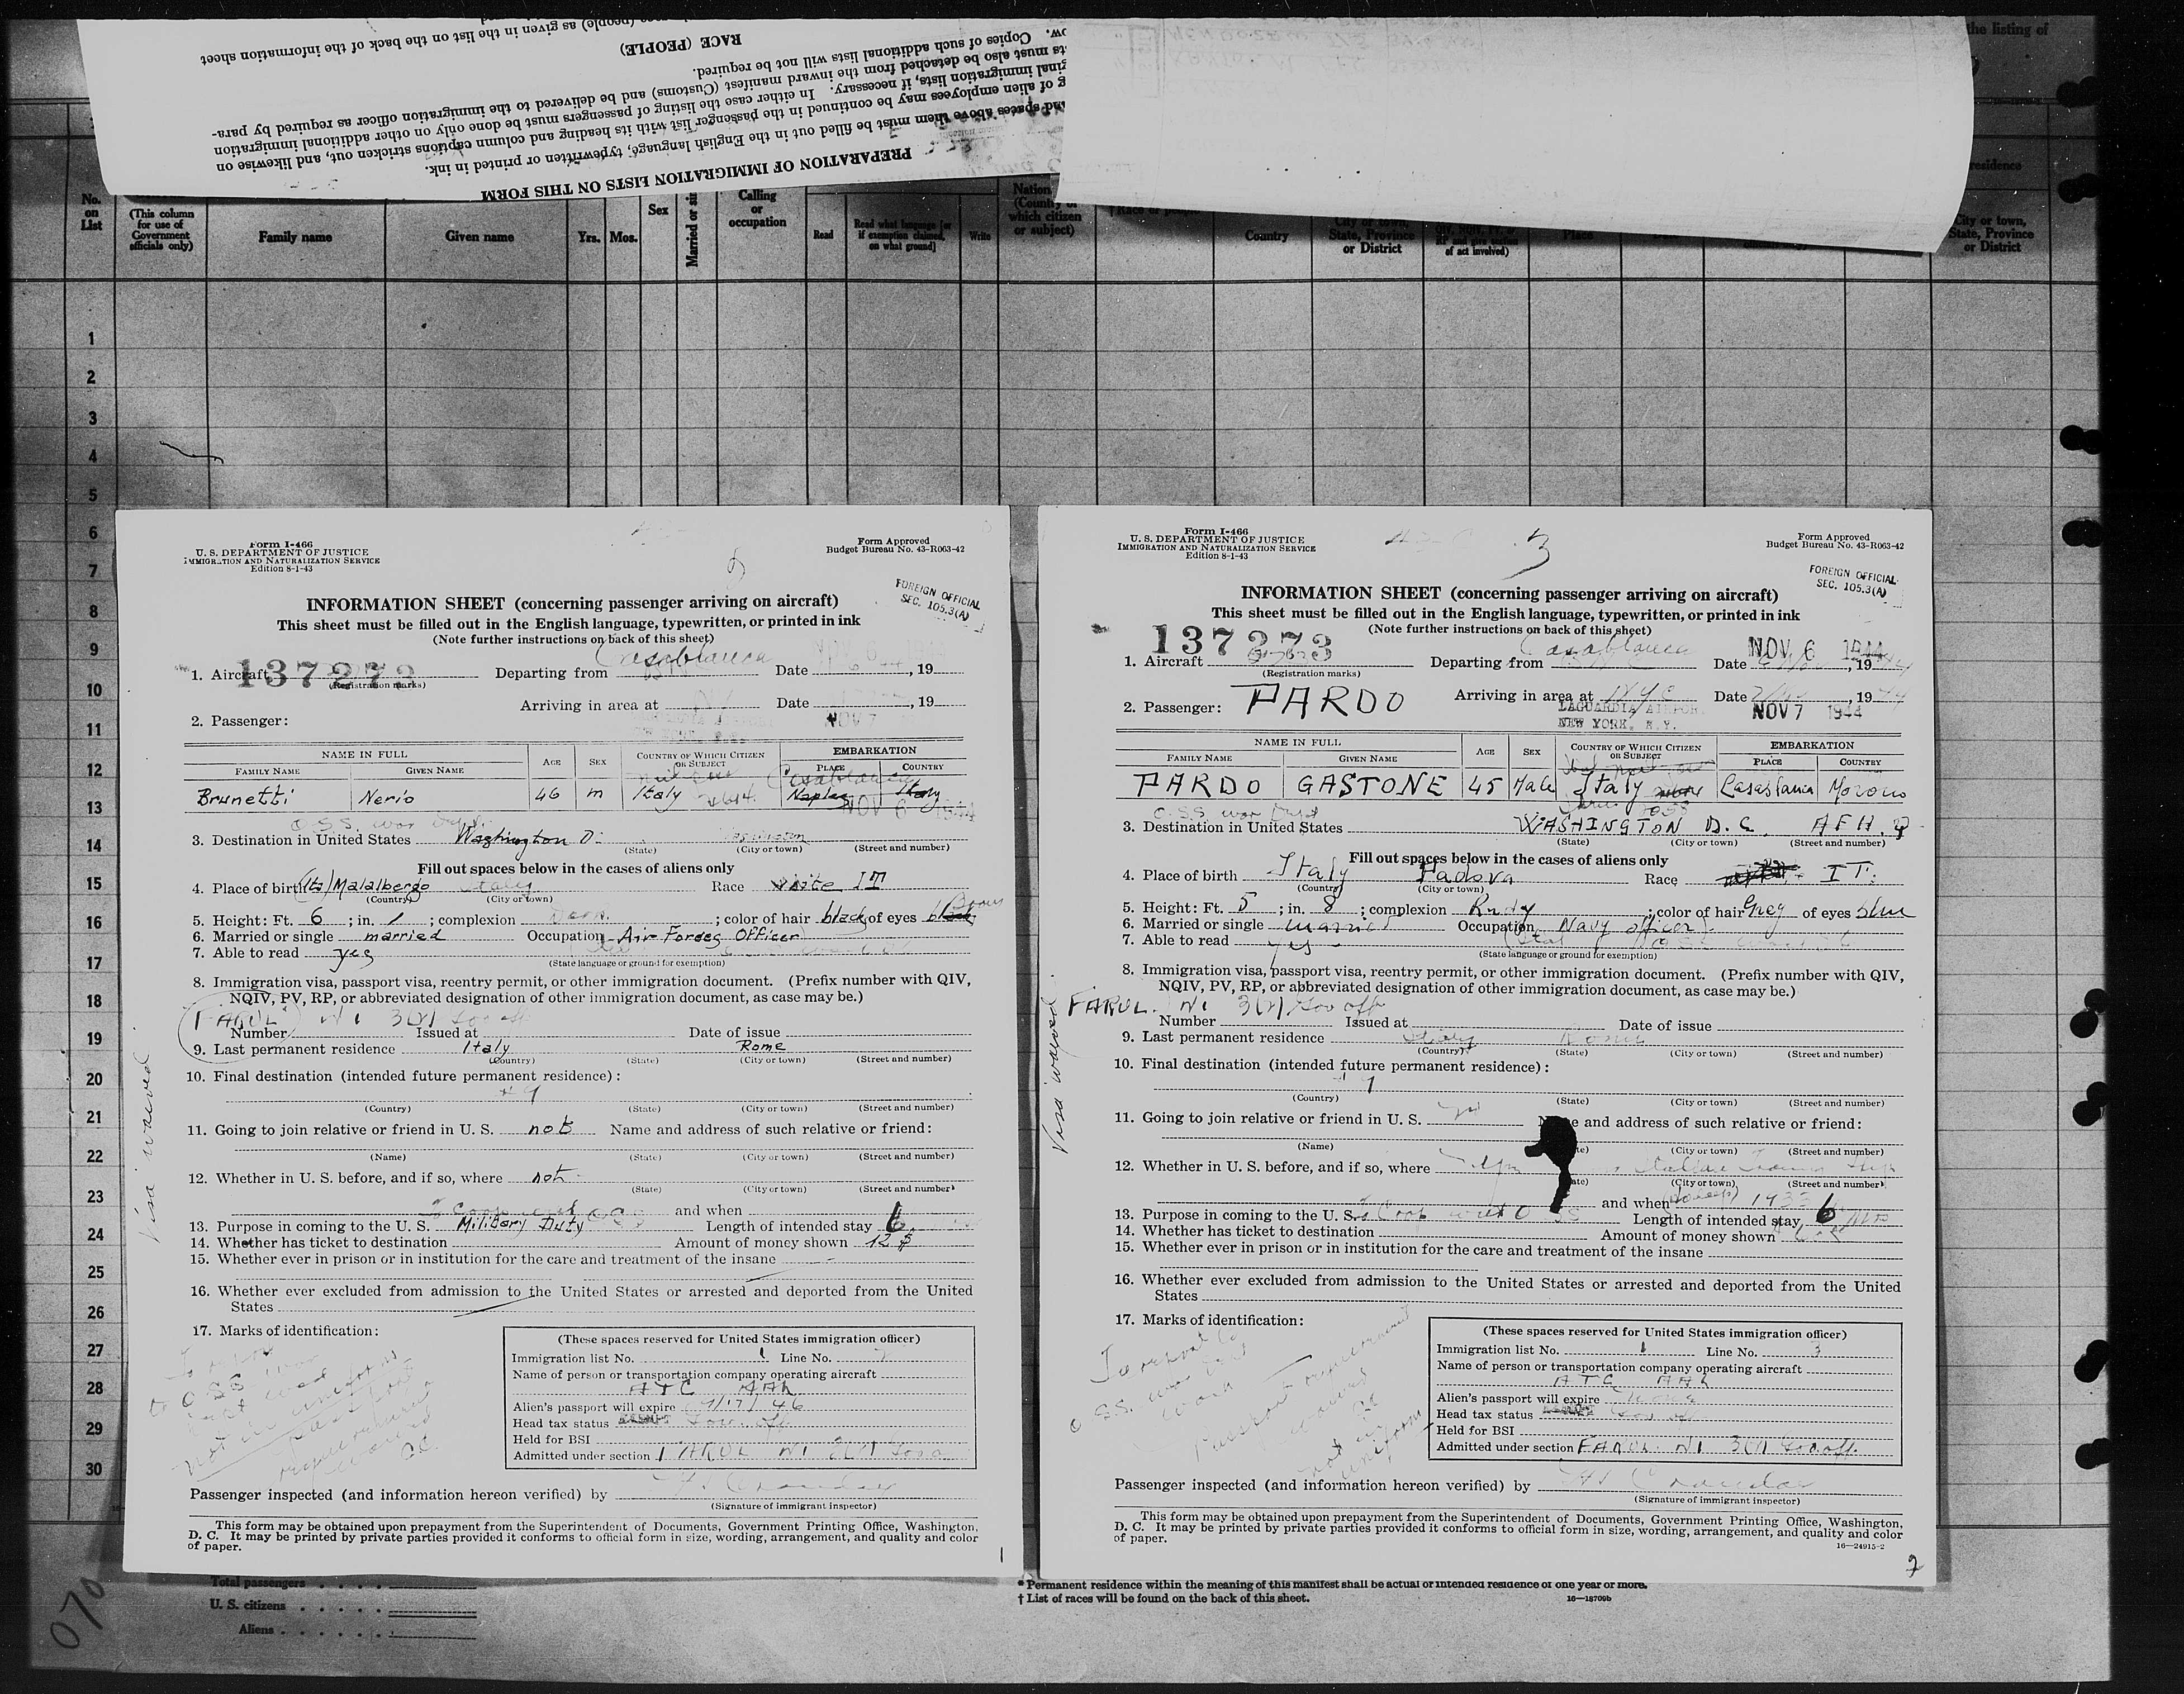 the listing of
PREPARATION OF IMMIGRATION LISTS ON THIS FORM
nd spaces above them must be filled out in the English language, typewritten or printed in ink.
g of alien employees may be continued in the passenger list with its heading and column captions stricken out, and likewise on
ginal immigration lists, if necessary. In either case the listing of passengers must be done only on other additional immigration
ts must also be detached from the inward manifest (Customs) and be delivered to the immigration officer as required by para-
ow. Copies of such additional lists will not be required.
RACE (PEOPLE)
(people) as given in the list on the back of the information sheet
No. on List
(This column for use of Government officials only)
Family name
Given name
Yrs.
Mos.
Sex
Married or sin
Calling or occupation
Read
Read what language [or if exemption claimed, on what ground]
Write
Nation (Country of which citizen or subject)
†Race or people
Country
City or town, State, Province or District
of act involved)
Place
residence
City or town, State, Province or District
1
2
3
4
5
6
7
8
9
10
11
12
13
14
15
16
17
18
19
20
21
22
23
24
25
26
27
28
29
30
Form I-466
U. S. DEPARTMENT OF JUSTICE
IMMIGRATION AND NATURALIZATION SERVICE
Edition 8-1-43
Form Approved
Budget Bureau No. 43-R063-42
FOREIGN OFFICIAL
SEC. 105.3(A)
INFORMATION SHEET (concerning passenger arriving on aircraft)
This sheet must be filled out in the English language, typewritten, or printed in ink
(Note further instructions on back of this sheet)
NOV 6 1944
1. Aircraft 137273 Departing from Casablanca Date , 19
(Registration marks)
Arriving in area at Date , 19
2. Passenger: NOV 7
NAME IN FULL AGE SEX COUNTRY OF WHICH CITIZEN OR SUBJECT EMBARKATION
FAMILY NAME GIVEN NAME PLACE COUNTRY
Casablanca
Brunetti Nerio 46 m Italy Naples Italy
NOV 6 1944
O.S.S. war Dept.
3. Destination in United States Washington D. Washington
(State) (City or town) (Street and number)
Fill out spaces below in the cases of aliens only
4. Place of birth (Ita) Malalbergo Italy Race white IT
(Country) (City or town)
5. Height: Ft. 6 ; in. 1 ; complexion Dark ; color of hair black of eyes black Brown
6. Married or single married Occupation Air Forces Officer
7. Able to read yes
(State language or ground for exemption)
8. Immigration visa, passport visa, reentry permit, or other immigration document. (Prefix number with QIV,
NQIV, PV, RP, or abbreviated designation of other immigration document, as case may be.)
FAROL NI 3(1) Gov off
Number Issued at Date of issue
9. Last permanent residence Italy Rome
(Country) (State) (City or town) (Street and number)
Visa waived
10. Final destination (intended future permanent residence):
# 9
(Country) (State) (City or town) (Street and number)
11. Going to join relative or friend in U. S. not Name and address of such relative or friend:
(Name) (State) (City or town) (Street and number)
12. Whether in U. S. before, and if so, where not
(State) (City or town) (Street and number)
To Coop with OSS and when
13. Purpose in coming to the U. S. Military Duty Length of intended stay 6
14. Whether has ticket to destination Amount of money shown 12 $
15. Whether ever in prison or in institution for the care and treatment of the insane
16. Whether ever excluded from admission to the United States or arrested and deported from the United
States
17. Marks of identification:
to OSS war
not in uniform
passport
waived
(These spaces reserved for United States immigration officer)
Immigration list No. 1 Line No. 2
Name of person or transportation company operating aircraft
ATC AAL
Alien's passport will expire 9/17/46
Head tax status EXEMPT Gov off
Held for BSI
Admitted under section FAROL NI 3(1) Gov o
Passenger inspected (and information hereon verified) by
(Signature of immigrant inspector)
This form may be obtained upon prepayment from the Superintendent of Documents, Government Printing Office, Washington,
D. C. It may be printed by private parties provided it conforms to official form in size, wording, arrangement, and quality and color
of paper.
1
Form I-466
U. S. DEPARTMENT OF JUSTICE
IMMIGRATION AND NATURALIZATION SERVICE
Edition 8-1-43
3
Form Approved
Budget Bureau No. 43-R063-42
FOREIGN OFFICIAL
SEC. 105.3(A)
INFORMATION SHEET (concerning passenger arriving on aircraft)
This sheet must be filled out in the English language, typewritten, or printed in ink
(Note further instructions on back of this sheet)
137273 NOV 6 1944
1. Aircraft Departing from Casablanca Date , 19 44
(Registration marks)
Arriving in area at NYC Date , 19 44
2. Passenger: PARDO
LAGUARDIA AIRPOR
NEW YORK, N.Y.
NOV 7 1944
NAME IN FULL AGE SEX COUNTRY OF WHICH CITIZEN OR SUBJECT EMBARKATION
FAMILY NAME GIVEN NAME PLACE COUNTRY
PARDO GASTONE 45 Male Italy Casablanca Moroco
O.S.S. war Dept
3. Destination in United States WASHINGTON D.C. AFH.Q
(State) (City or town) (Street and number)
Fill out spaces below in the cases of aliens only
4. Place of birth Italy Padova Race IT:
(Country) (City or town)
5. Height: Ft. 5 ; in. 8 ; complexion Rudy ; color of hair Grey of eyes blue
6. Married or single married Occupation Navy officer
7. Able to read yes Ital
(State language or ground for exemption)
8. Immigration visa, passport visa, reentry permit, or other immigration document. (Prefix number with QIV,
NQIV, PV, RP, or abbreviated designation of other immigration document, as case may be.)
FAROL. NI 3(1) Gov off
Number Issued at Date of issue
9. Last permanent residence Italy Rome
(Country) (State) (City or town) (Street and number)
Visa waived
10. Final destination (intended future permanent residence):
# 9
(Country) (State) (City or town) (Street and number)
11. Going to join relative or friend in U. S. no N e and address of such relative or friend:
(Name) (State) (City or town) (Street and number)
12. Whether in U. S. before, and if so, where
(State) (City or town) (Street and number)
and when 1933
13. Purpose in coming to the U. S. to Coop with OSS Length of intended stay 6 mo
14. Whether has ticket to destination Amount of money shown
15. Whether ever in prison or in institution for the care and treatment of the insane
16. Whether ever excluded from admission to the United States or arrested and deported from the United
States
17. Marks of identification:
To report to
O S.S. war Dept
Wash
Passport requirement
waived
not in
uniform
(These spaces reserved for United States immigration officer)
Immigration list No. 1 Line No. 3
Name of person or transportation company operating aircraft
ATC AAL
Alien's passport will expire None
Head tax status EXEMPT Gov off
Held for BSI
Admitted under section FAROL NI 3(1) Gov off.
Passenger inspected (and information hereon verified) by
(Signature of immigrant inspector)
This form may be obtained upon prepayment from the Superintendent of Documents, Government Printing Office, Washington,
D. C. It may be printed by private parties provided it conforms to official form in size, wording, arrangement, and quality and color
of paper.
16—24915-2
2
Total passengers
U. S. citizens
Aliens
070
* Permanent residence within the meaning of this manifest shall be actual or intended residence of one year or more.
† List of races will be found on the back of this sheet.
16—18709b